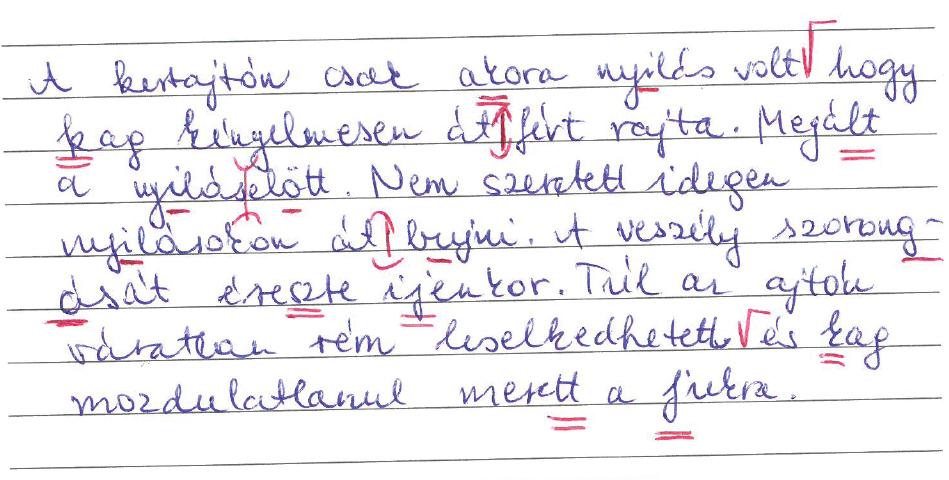 A kertajtón csak akora nyilás volt hogy
kag kényelmesen át fért rajta. Megált
a nyiláselött. Nem szeretett idegen
nyilásokon át bujni. A veszély szorong-
ását éreszte ijenkor. Túl az ajtón
váratlan rém leselkedhetett és kag
mozdulatlanul merett a jukra.